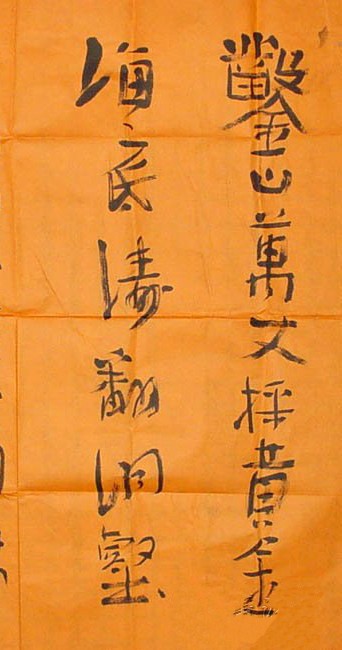 鑿山萬丈採黃金
海底濤翻洞壑